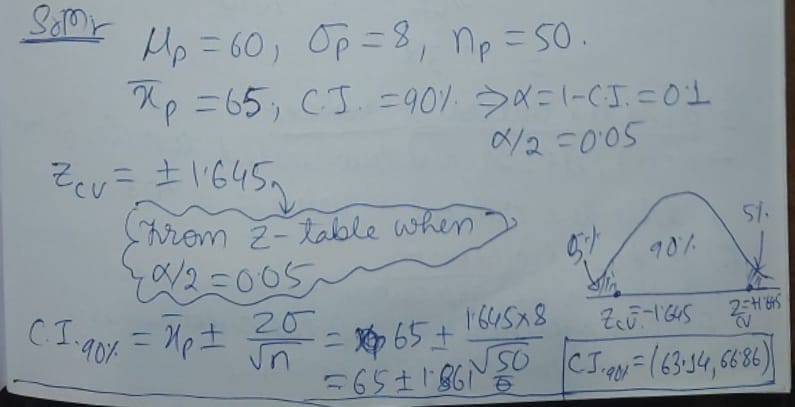 Soln
μp = 60, σp = 8, np = 50.
x̄p = 65, C.I. = 90% ⇒ α = 1 - C.I. = 0.1
α/2 = 0.05
Zcv = ± 1.645
From Z-table when
α/2 = 0.05
5%
90%
5%
Zcv = -1.645
Zcv = +1.645
C.I.90% = x̄p ± Zσ/√n = 65 ± 1.645×8/√50
= 65 ± 1.861
C.I.90% = (63.14, 66.86)